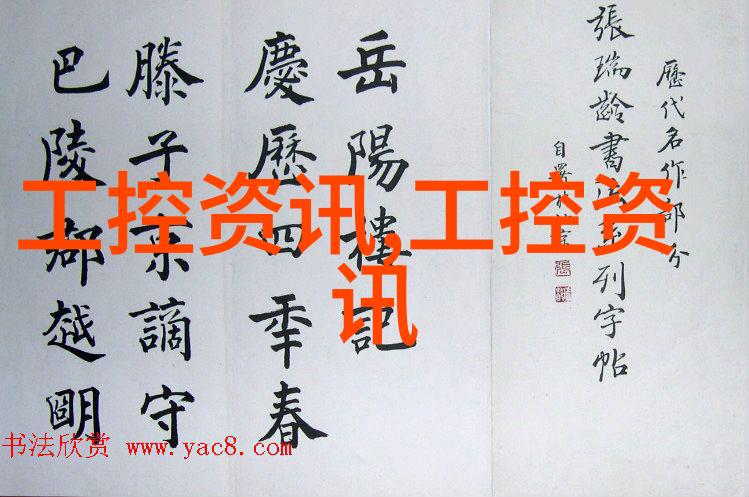 歷代名作部分
張瑞齡書法系列字帖
自署
岳陽樓記
慶歷四年春
滕子京謫守
巴陵郡越朙
工控资讯,工控资
讯
书法欣赏 www.yac8.com